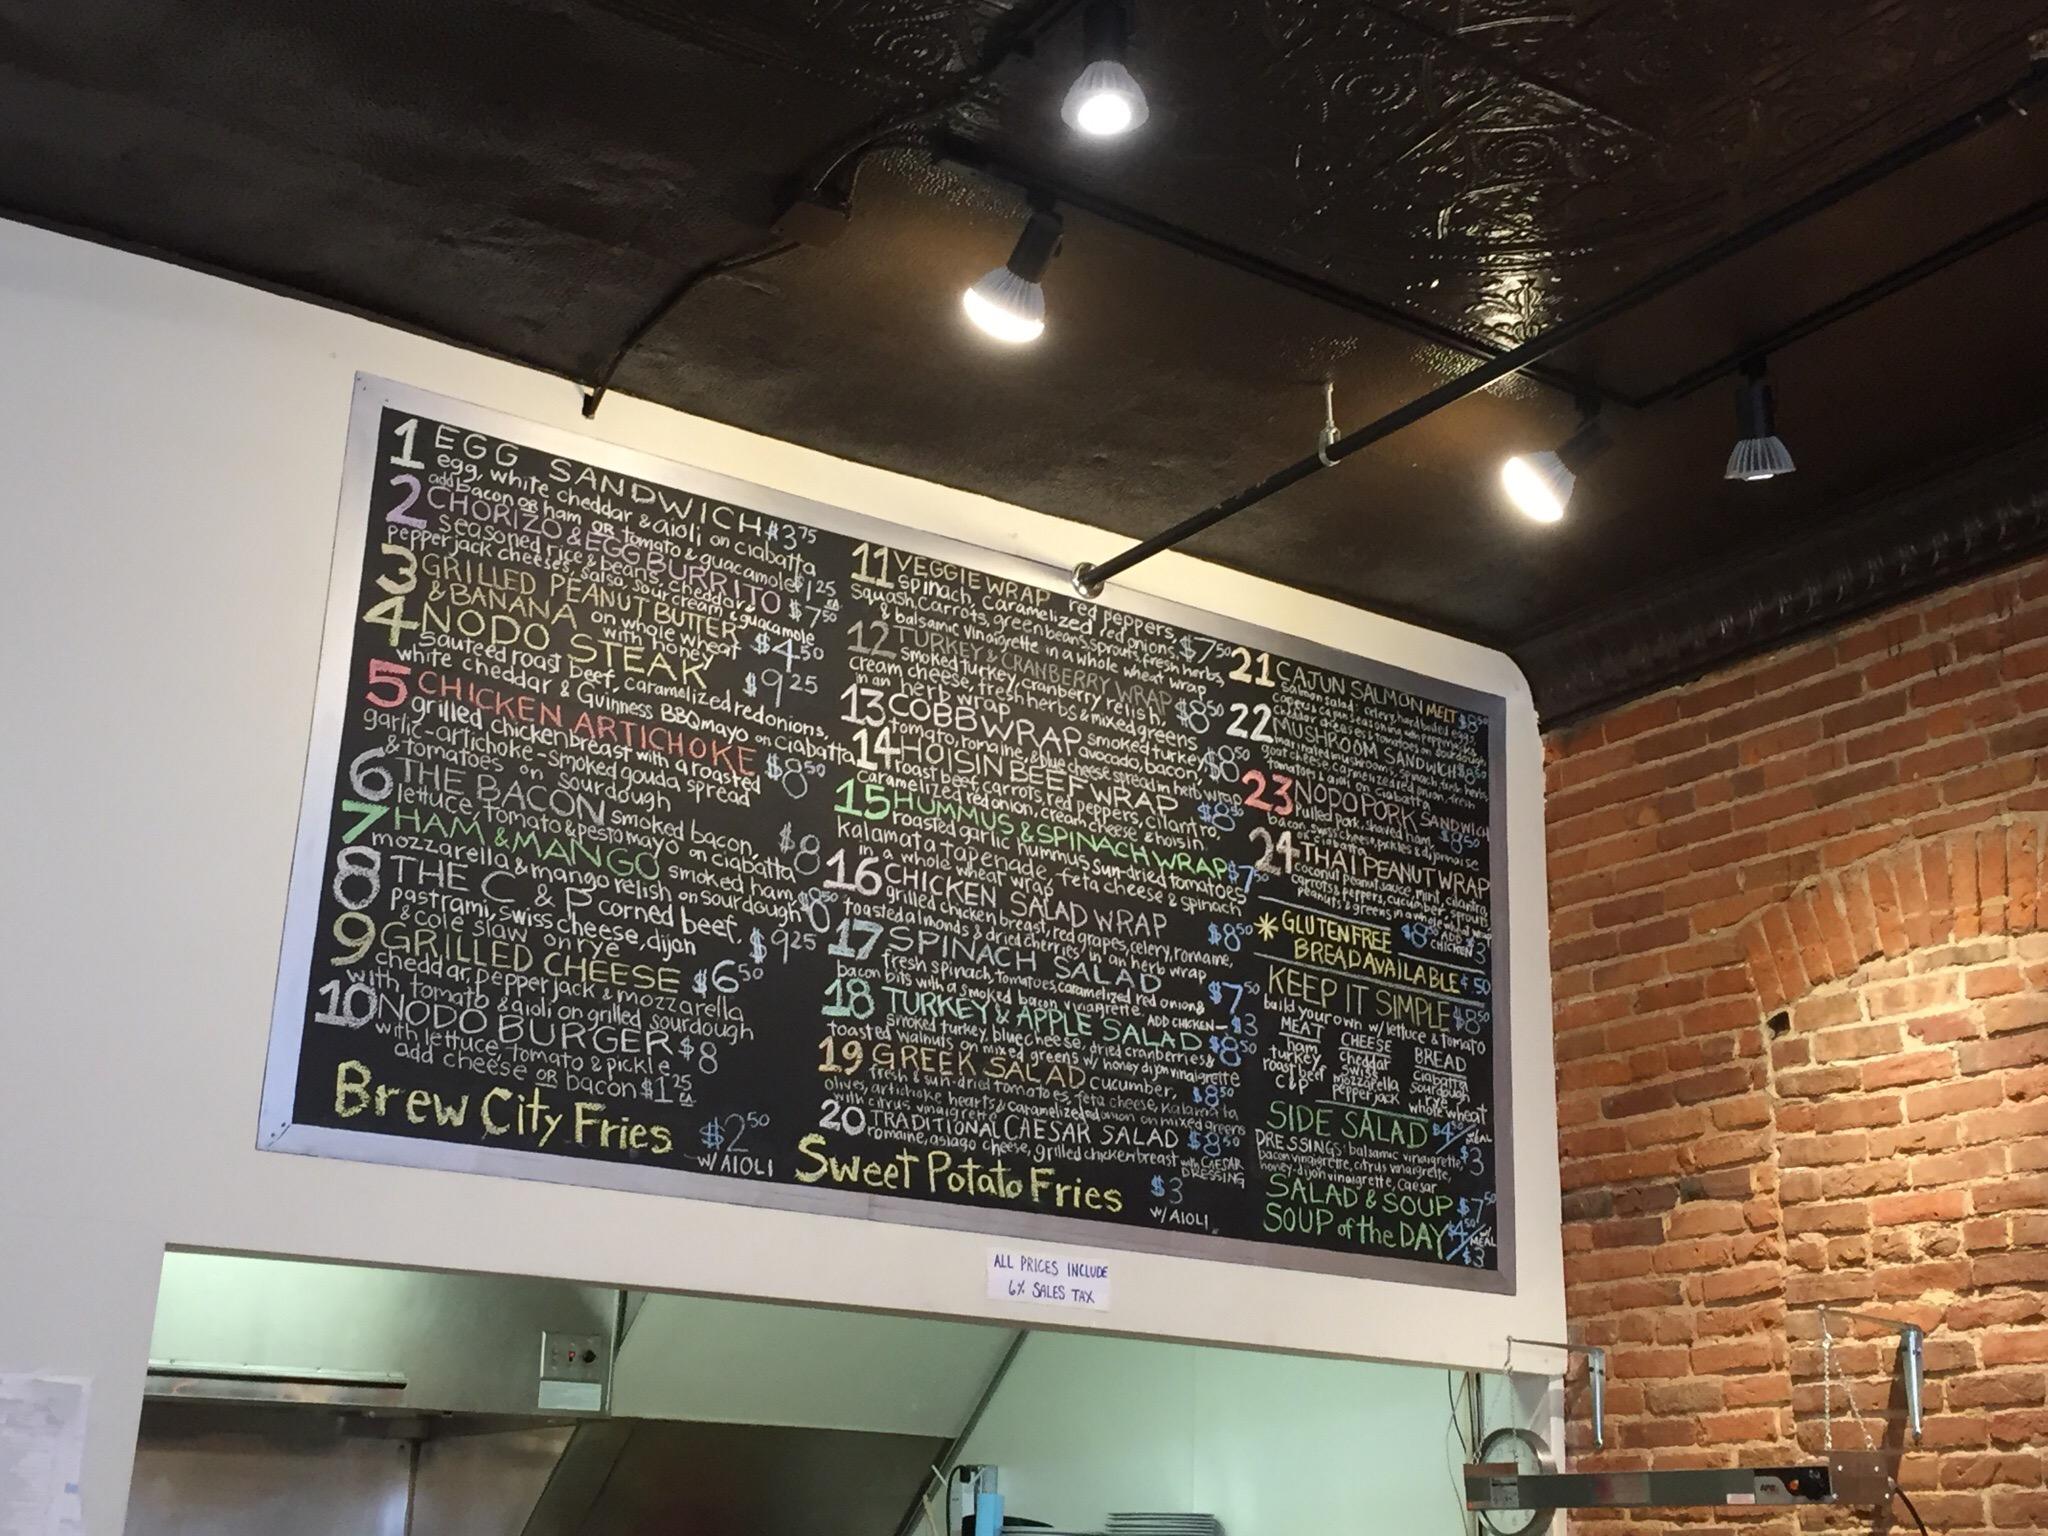 1 EGG SANDWICH $3.75
egg, white cheddar & aioli on ciabatta
add bacon OR ham OR tomato & guacamole $1.25 ea.
2 CHORIZO & EGG BURRITO $7.50
seasoned rice & beans, cheddar &
pepperjack cheeses, salsa, sour cream & guacamole
3 GRILLED PEANUT BUTTER
& BANANA on whole wheat with honey $4.50
4 NODO STEAK $9.25
Sauteed roast beef, caramelized red onions,
white cheddar & Guinness BBQ mayo on ciabatta
5 CHICKEN ARTICHOKE $8.50
grilled chicken breast with a roasted
garlic-artichoke-smoked gouda spread
& tomatoes on sourdough
6 THE BACON smoked bacon, $8
lettuce, tomato & pesto mayo on ciabatta
7 HAM & MANGO smoked ham, $8.50
mozzarella & mango relish on sourdough
8 THE C & P corned beef, $9.25
pastrami, swiss cheese, dijon
& cole slaw on rye
9 GRILLED CHEESE $6.50
cheddar, pepperjack & mozzarella
with tomato & aioli on grilled sourdough
10 NODO BURGER $8
with lettuce, tomato & pickle
add cheese OR bacon $1.25 ea
Brew City Fries $2.50
W/ AIOLI
11 VEGGIE WRAP red peppers,
spinach, caramelized red onions, $7.50
squash, carrots, green beans, sprouts, fresh herbs,
& balsamic vinaigrette in a whole wheat wrap
12 TURKEY & CRANBERRY WRAP
smoked turkey, cranberry relish, $8.50
cream cheese, fresh herbs & mixed greens
in an herb wrap
13 COBB WRAP smoked turkey, $8.50
tomato, romaine, avocado, bacon,
& blue cheese spread in herb wrap
14 HOISIN BEEF WRAP $8.50
roast beef, carrots, red peppers, cilantro,
caramelized red onion, cream cheese & hoisin
15 HUMMUS & SPINACH WRAP $7.50
roasted garlic hummus, sun-dried tomatoes,
kalamata tapenade, feta cheese & spinach
in a whole wheat wrap
16 CHICKEN SALAD WRAP $8.50
grilled chicken breast, red grapes, celery, romaine,
toasted almonds & dried cherries in an herb wrap
17 SPINACH SALAD $7.50
fresh spinach, tomatoes, caramelized red onion &
bacon bits with a smoked bacon vinaigrette. ADD CHICKEN - $3
18 TURKEY & APPLE SALAD $8.50
smoked turkey, blue cheese, dried cranberries &
toasted walnuts on mixed greens w/ honey dijon vinaigrette
19 GREEK SALAD cucumber, $8.50
fresh & sun-dried tomatoes, feta cheese, kalamata
olives, artichoke hearts & caramelized onion on mixed greens
with citrus vinaigrette
20 TRADITIONAL CAESAR SALAD $8.50
romaine, asiago cheese, grilled chicken breast with CAESAR DRESSING
Sweet Potato Fries $3
W/ AIOLI
21 CAJUN SALMON MELT $8.50
salmon salad: celery, hard boiled eggs,
capers & cajun seasoning with pepperjack,
cheddar cheeses & tomatoes on sourdough
22 MUSHROOM SANDWICH $8.50
marinated mushrooms, spinach, fresh herbs,
goat cheese, carmelized red onion, fresh
tomatoes & aioli on ciabatta
23 NODO PORK SANDWICH $8.50
Pulled pork, shaved ham,
bacon, swiss cheese, pickles & dijonnaise
on ciabatta
24 THAI PEANUT WRAP
coconut peanut sauce, mint, cilantro,
carrots, peppers, cucumber, sprouts,
peanuts & greens in a whole wheat wrap
$8.50 ADD CHICKEN $3
* GLUTEN FREE
BREAD AVAILABLE $.50
KEEP IT SIMPLE $8.50
build your own w/ lettuce & tomato
MEAT CHEESE BREAD
ham cheddar ciabatta
turkey swiss sourdough
roast beef mozzarella rye
pepperjack whole wheat
SIDE SALAD $4.50/w/MEAL $3
DRESSINGS: balsamic vinaigrette,
bacon vinaigrette, citrus vinaigrette,
honey-dijon vinaigrette, caesar
SALAD & SOUP $7.50
SOUP of the DAY $4.50/w/ MEAL $3
ALL PRICES INCLUDE
6% SALES TAX